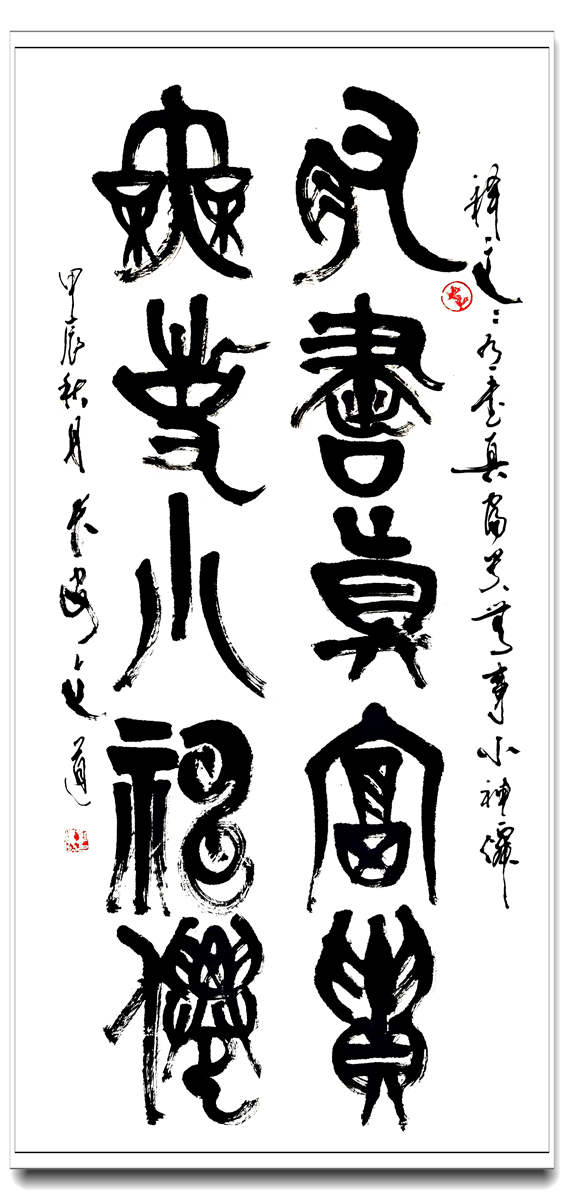 釋文：有書真富貴無事小神僊
有書真富貴
無事小神僊
甲辰秋月 道